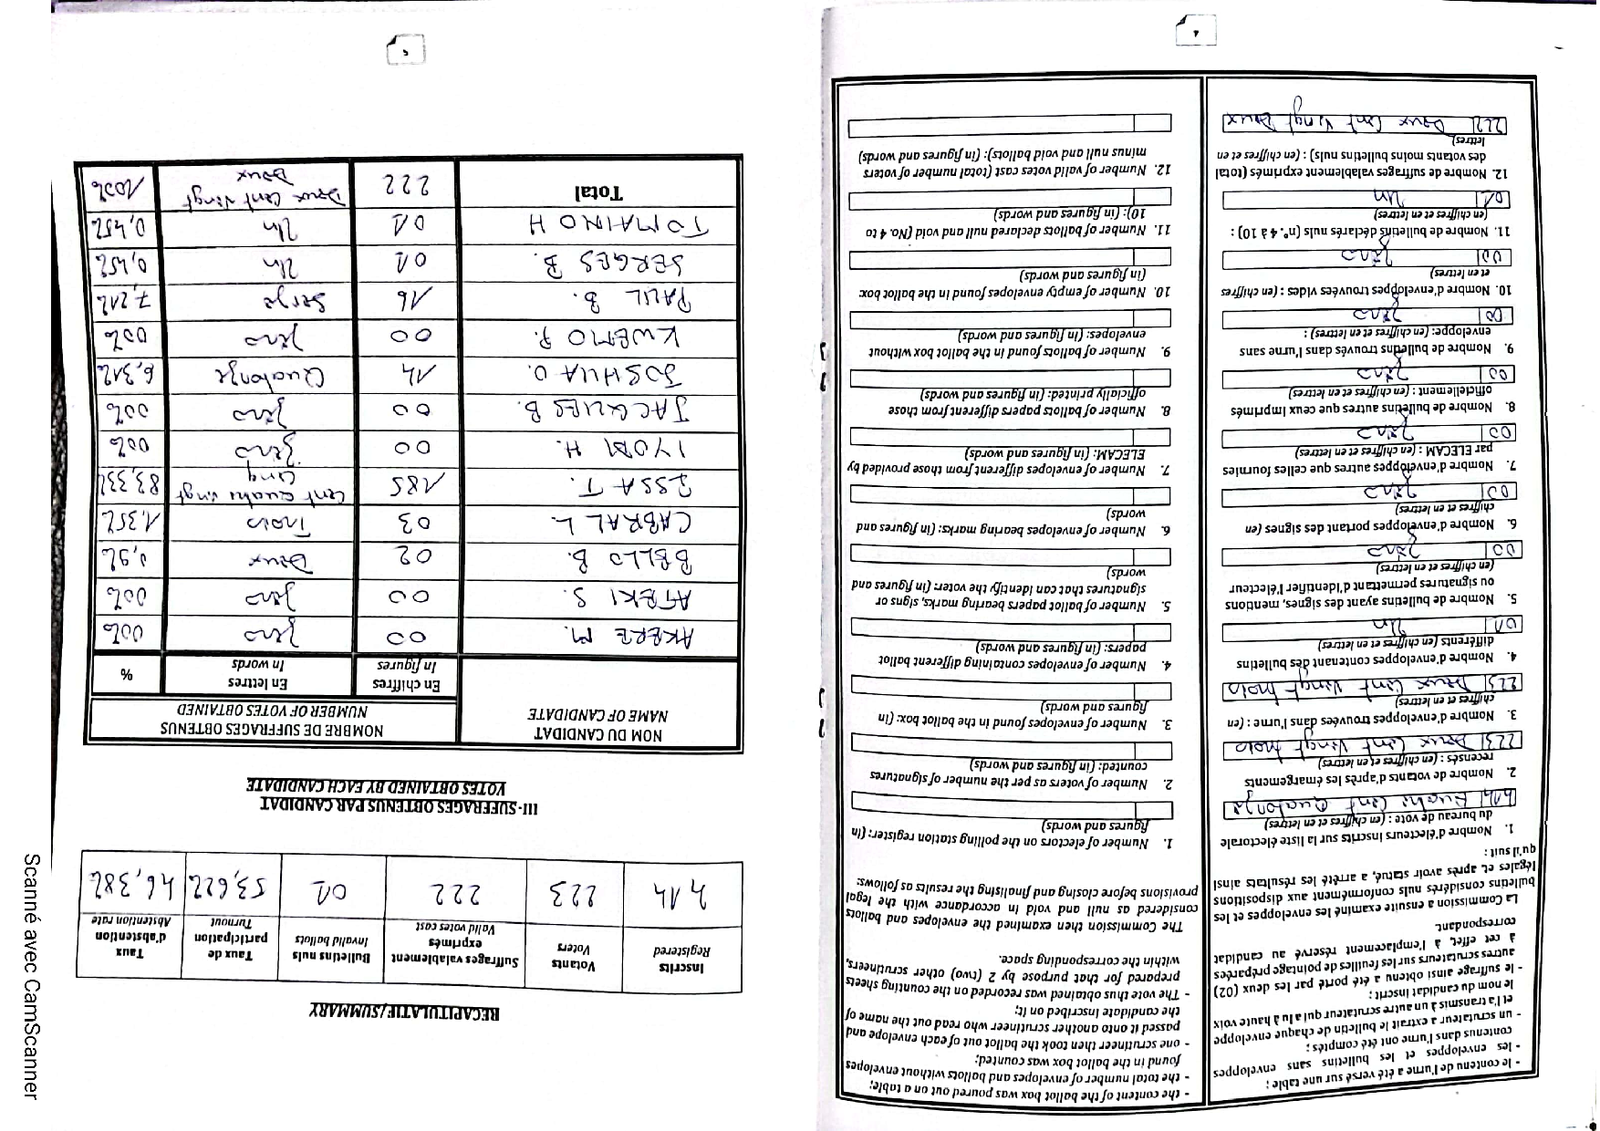 4
- le contenu de l'urne a été versé sur une table ;
- les enveloppes et les bulletins sans enveloppes
contenus dans l'urne ont été comptés ;
- un scrutateur a extrait le bulletin de chaque enveloppe
et l'a transmis à un autre scrutateur qui a lu à haute voix
le nom du candidat inscrit ;
- le suffrage ainsi obtenu a été porté par les deux (02)
autres scrutateurs sur les feuilles de pointage préparées
à cet effet, à l'emplacement réservé au candidat
correspondant.
La Commission a ensuite examiné les enveloppes et les
bulletins considérés nuls conformément aux dispositions
légales et, après avoir statué, a arrêté les résultats ainsi
qu'il suit :
1. Nombre d'électeurs inscrits sur la liste électorale
du bureau de vote : (en chiffres et en lettres)
414 Quatre Cent Quatorze
2. Nombre de votants d'après les émargements
recensés : (en chiffres et en lettres)
223 Deux Cent Vingt trois
3. Nombre d'enveloppes trouvées dans l'urne : (en
chiffres et en lettres)
223 Deux Cent Vingt trois
4. Nombre d'enveloppes contenant des bulletins
différents (en chiffres et en lettres)
01 Un
5. Nombre de bulletins ayant des signes, mentions
ou signatures permettant d'identifier l'électeur
(en chiffres et en lettres)
00 Zéro
6. Nombre d'enveloppes portant des signes (en
chiffres et en lettres)
00 Zéro
7. Nombre d'enveloppes autres que celles fournies
par ELECAM : (en chiffres et en lettres)
00 Zéro
8. Nombre de bulletins autres que ceux imprimés
officiellement : (en chiffres et en lettres)
00 Zéro
9. Nombre de bulletins trouvés dans l'urne sans
enveloppe: (en chiffres et en lettres) :
00 Zéro
10. Nombre d'enveloppes trouvées vides : (en chiffres
et en lettres)
00 Zéro
11. Nombre de bulletins déclarés nuls (n°. 4 à 10) :
(en chiffres et en lettres)
01 Un
12. Nombre de suffrages valablement exprimés (total
des votants moins bulletins nuls) : (en chiffres et en
lettres)
222 Deux Cent Vingt Deux
- the content of the ballot box was poured out on a table;
- the total number of envelopes and ballots without envelopes
found in the ballot box was counted;
- one scrutineer then took the ballot out of each envelope and
passed it onto another scrutineer who read out the name of
the candidate inscribed on it;
- The vote thus obtained was recorded on the counting sheets
prepared for that purpose by 2 (two) other scrutineers,
within the corresponding space.
The Commission then examined the envelopes and ballots
considered as null and void in accordance with the legal
provisions before closing and finalising the results as follows:
1. Number of electors on the polling station register: (in
figures and words)
2. Number of voters as per the number of signatures
counted: (in figures and words)
3. Number of envelopes found in the ballot box: (in
figures and words)
4. Number of envelopes containing different ballot
papers: (in figures and words)
5. Number of ballot papers bearing marks, signs or
signatures that can identify the voter: (in figures and
words)
6. Number of envelopes bearing marks: (in figures and
words)
7. Number of envelopes different from those provided by
ELECAM: (in figures and words)
8. Number of ballots papers different from those
officially printed: (in figures and words)
9. Number of ballots found in the ballot box without
envelopes: (in figures and words)
10. Number of empty envelopes found in the ballot box:
(in figures and words)
11. Number of ballots declared null and void (No. 4 to
10): (in figures and words)
12. Number of valid votes cast (total number of voters
minus null and void ballots): (in figures and words)
5
RECAPITULATIF/SUMMARY
Inscrits Registered Votants Voters Suffrages valablement exprimés Valid votes cast Bulletins nuls Invalid ballots Taux de participation Turnout Taux d'abstention Abstention rate
414 223 222 01 53,62% 46,38%
III- SUFFRAGES OBTENUS PAR CANDIDAT
VOTES OBTAINED BY EACH CANDIDATE
NOM DU CANDIDAT NOMBRE DE SUFFRAGES OBTENUS
NAME OF CANDIDATE NUMBER OF VOTES OBTAINED
En chiffres En lettres %
In figures In words
AKERE M. 00 Zéro 00%
AFEKI S. 00 Zéro 00%
BELLO B. 02 Deux 0,9%
CABRAL L. 03 Trois 1,35%
ISSA T. 185 Cent Quatre vingt Cinq 83,33%
IYODI H. 00 Zéro 00%
JACQUES B. 00 Zéro 00%
JOSHUA O. 14 Quatorze 6,31%
KWEMO P. 00 Zéro 00%
PAUL B. 16 Seize 7,21%
SERGES B. 01 Un 0,45%
TOMAINO H 01 Un 0,45%
Total 222 Deux Cent Vingt Deux 100%
Scanné avec CamScanner